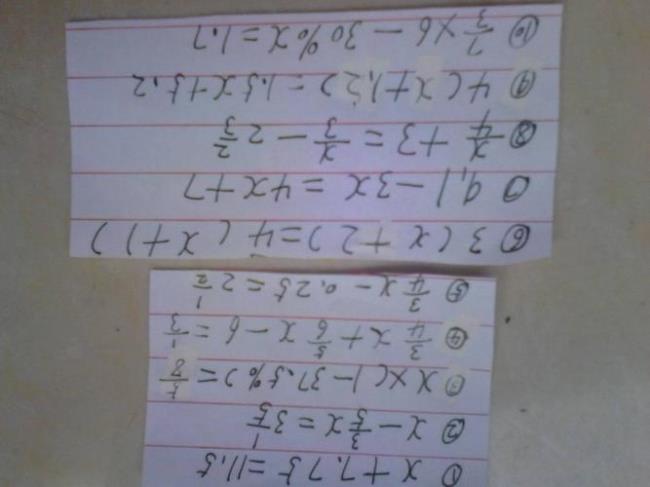 ① x+7.75=11.5
② x-3/5x=3 1/5
③ x×(1-37.5%)=5/8
④ 3/4x+5/6x-6=1/3
⑤ 3/4x-0.25=2 1/2
⑥ 3(x+2)=4(x+1)
⑦ 9.1-3x=4x+7
⑧ x/4+3=x/3-2 2/3
⑨ 4(x+1.2)=1.5x+5.2
⑩ 2/3×6-30%x=1.7